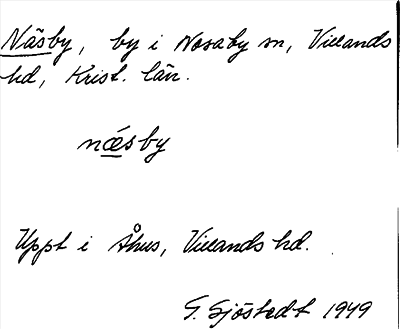 Näsby, by i Nosaby sn, Villands
hd, Krist. län.
nǽsby
Uppt i Åhus, Villands hd.
G. Sjöstedt 1949